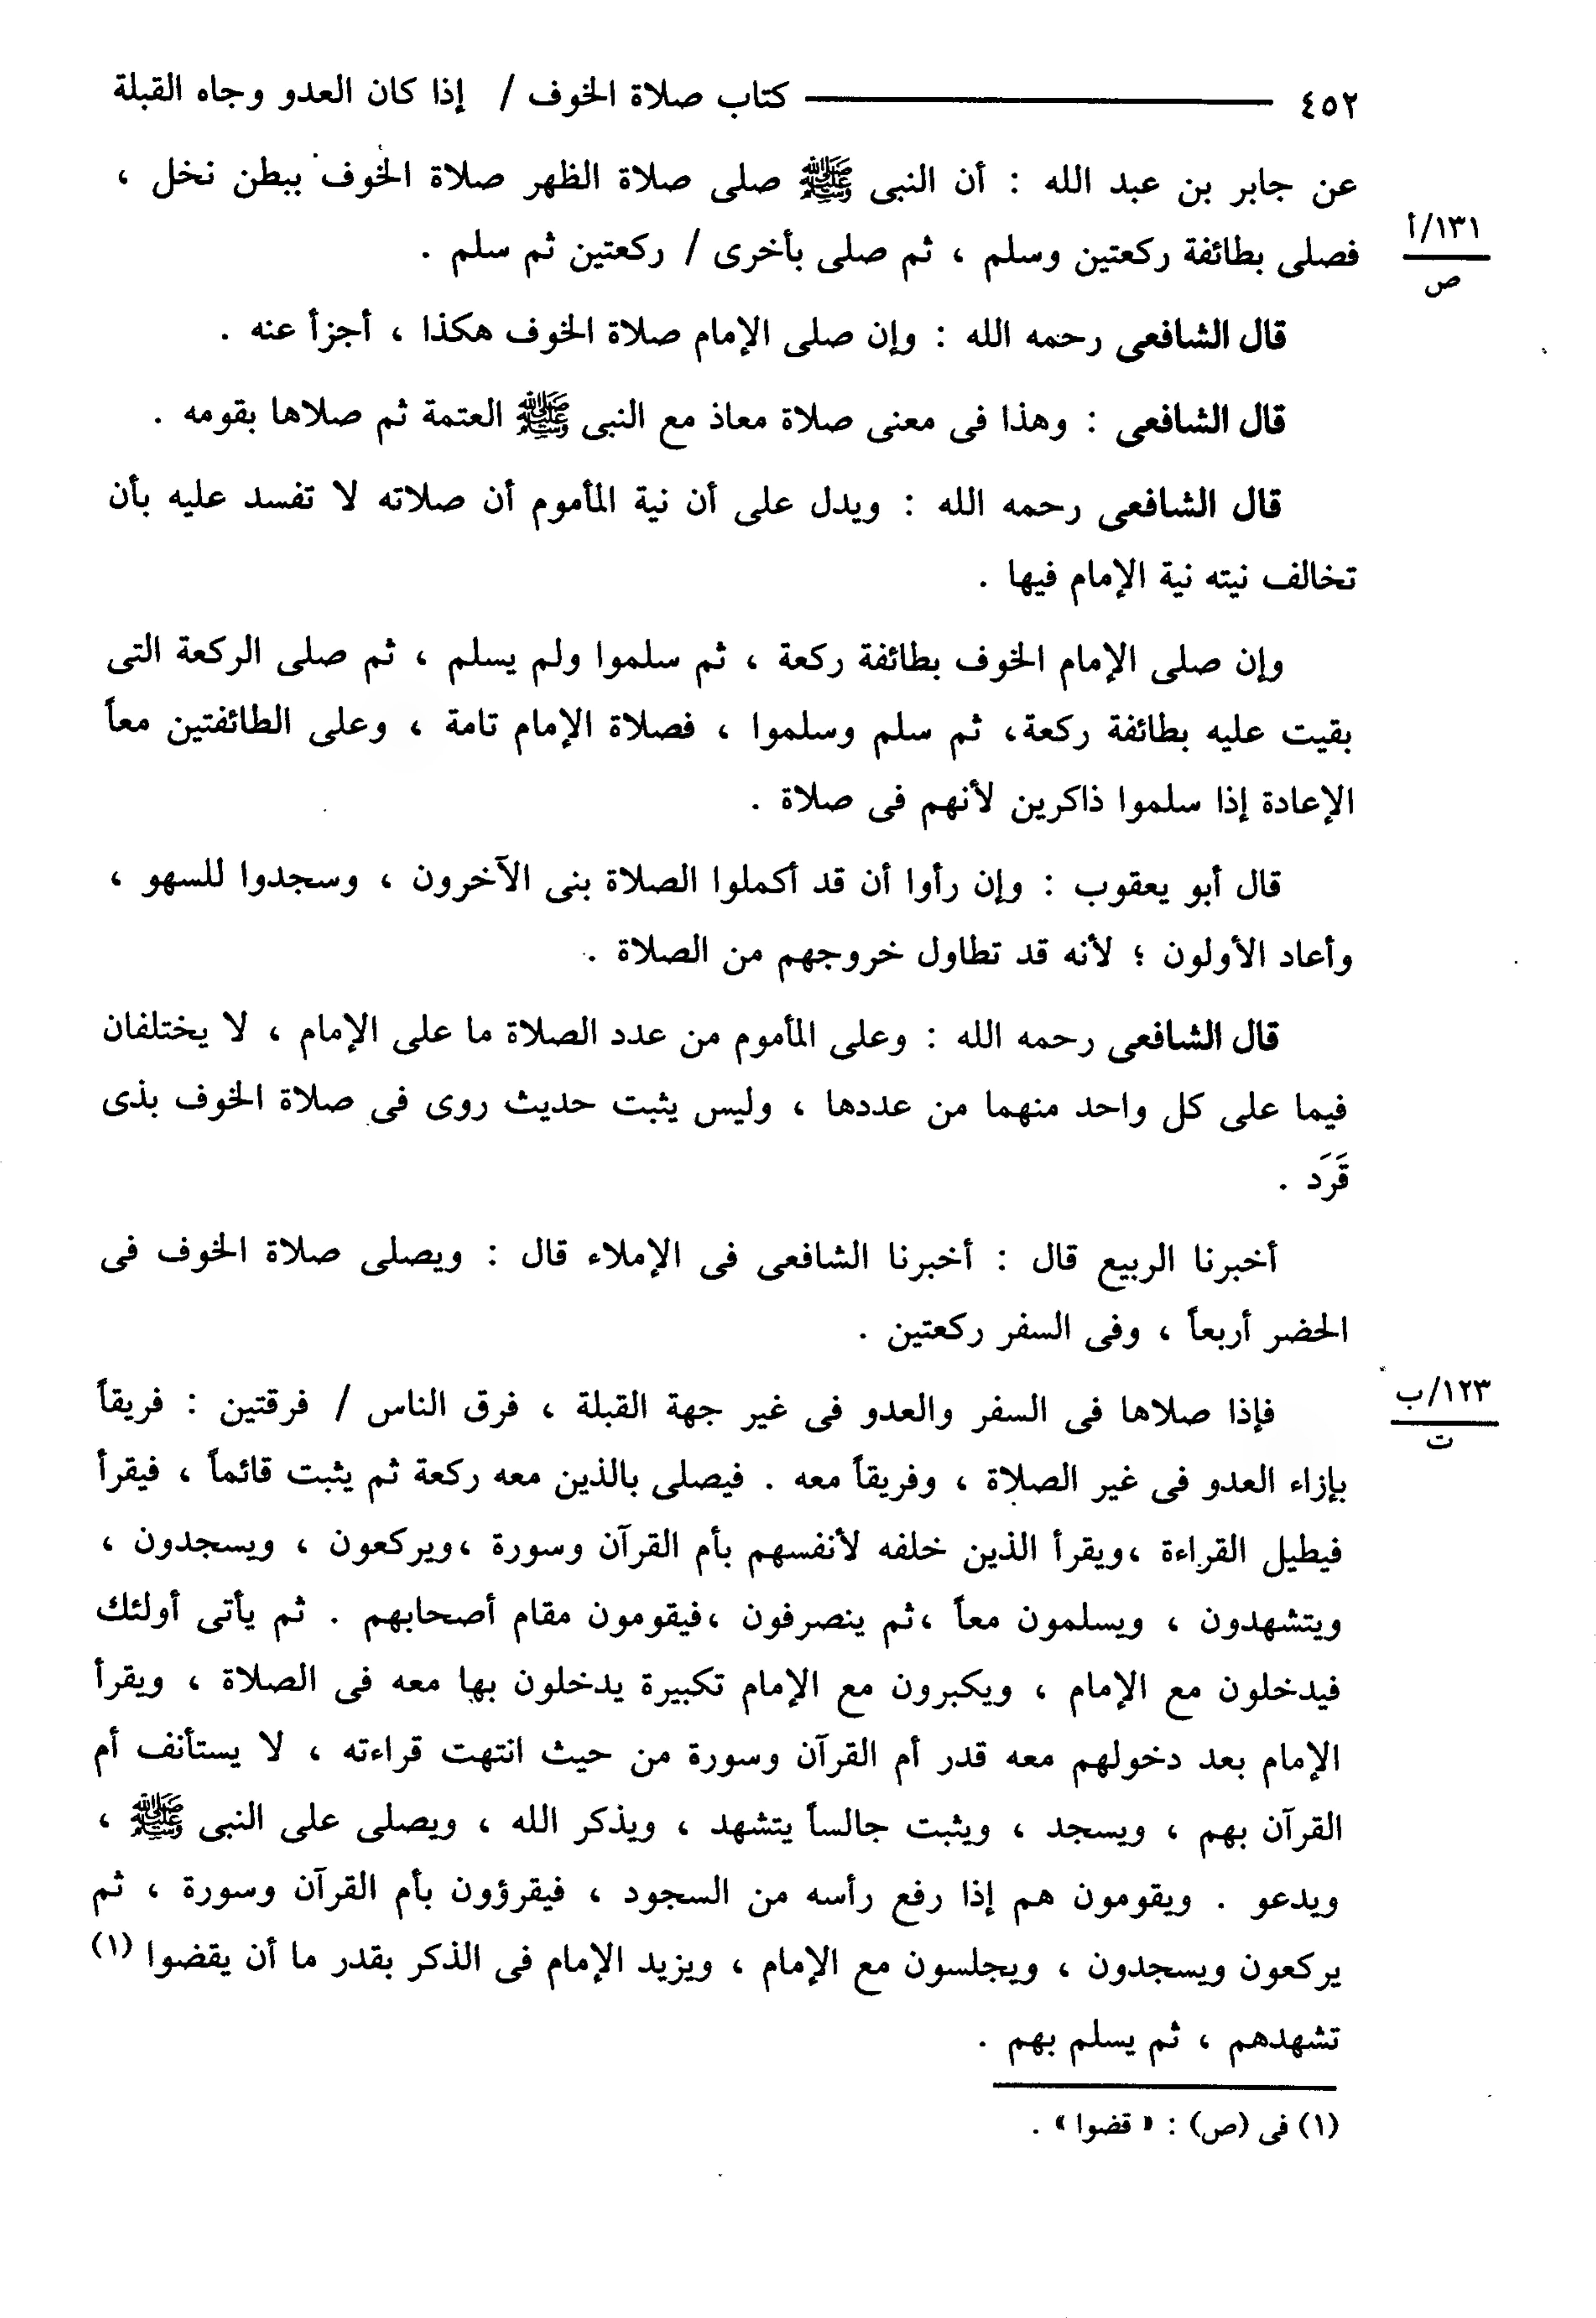 ٤٥٢ ــــــــــــــــــــ كتاب صلاة الخوف / إذا كان العدو وجاه القبلة
عن جابر بن عبد الله : أن النبى ﷺ صلى صلاة الظهر صلاة الخوف ببطن نخل ،
١٣١/أ
ص
فصلى بطائفة ركعتين وسلم ، ثم صلى بأخرى / ركعتين ثم سلم .
قال الشافعى رحمه الله : وإن صلى الإمام صلاة الخوف هكذا ، أجزأ عنه .
قال الشافعى : وهذا فى معنى صلاة معاذ مع النبى ﷺ العتمة ثم صلاها بقومه .
قال الشافعى رحمه الله : ويدل على أن نية المأموم أن صلاته لا تفسد عليه بأن
تخالف نيته نية الإمام فيها .
وإن صلى الإمام الخوف بطائفة ركعة ، ثم سلموا ولم يسلم ، ثم صلى الركعة التى
بقيت عليه بطائفة ركعة، ثم سلم وسلموا ، فصلاة الإمام تامة ، وعلى الطائفتين معاً
الإعادة إذا سلموا ذاكرين لأنهم فى صلاة .
قال أبو يعقوب : وإن رأوا أن قد أكملوا الصلاة بنى الآخرون ، وسجدوا للسهو ،
وأعاد الأولون ؛ لأنه قد تطاول خروجهم من الصلاة .
قال الشافعى رحمه الله : وعلى المأموم من عدد الصلاة ما على الإمام ، لا يختلفان
فيما على كل واحد منهما من عددها ، وليس يثبت حديث روى فى صلاة الخوف بذى
قَرَد .
أخبرنا الربيع قال : أخبرنا الشافعى فى الإملاء قال : ويصلى صلاة الخوف فى
الحضر أربعاً ، وفى السفر ركعتين .
١٢٣/ب
ت
فإذا صلاها فى السفر والعدو فى غير جهة القبلة ، فرق الناس / فرقتين : فريقاً
بإزاء العدو فى غير الصلاة ، وفريقاً معه . فيصلى بالذين معه ركعة ثم يثبت قائماً ، فيقرأ
فيطيل القراءة ،ويقرأ الذين خلفه لأنفسهم بأم القرآن وسورة ،ويركعون ، ويسجدون ،
ويتشهدون ، ويسلمون معاً ،ثم ينصرفون ،فيقومون مقام أصحابهم . ثم يأتى أولئك
فيدخلون مع الإمام ، ويكبرون مع الإمام تكبيرة يدخلون بها معه فى الصلاة ، ويقرأ
الإمام بعد دخولهم معه قدر أم القرآن وسورة من حيث انتهت قراءته ، لا يستأنف أم
القرآن بهم ، ويسجد ، ويثبت جالساً يتشهد ، ويذكر الله ، ويصلى على النبى ﷺ ،
ويدعو . ويقومون هم إذا رفع رأسه من السجود ، فيقرؤون بأم القرآن وسورة ، ثم
يركعون ويسجدون ، ويجلسون مع الإمام ، ويزيد الإمام فى الذكر بقدر ما أن يقضوا (١)
تشهدهم ، ثم يسلم بهم .
(١) فى (ص) : « قضوا » .